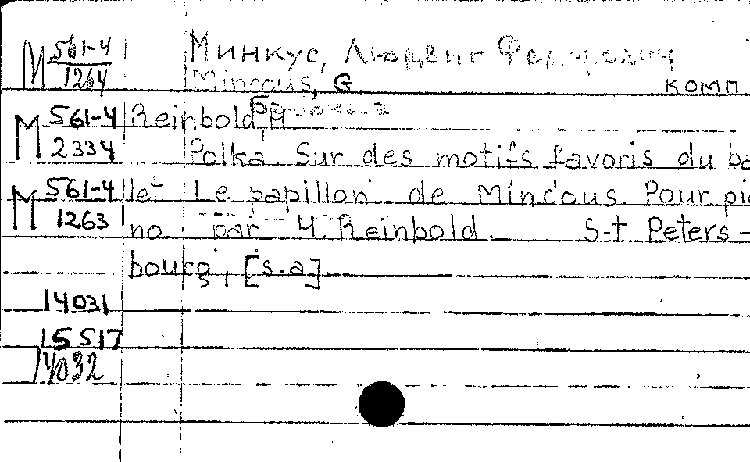 М 561-4 Минкус, Людвиг Федорович
1264 Mincous, G комп
М 561-4 Reinbold, H
2334 Polka Sur des motifs favoris du ba
М 561-4 let Le papillon de Mincous. Pour pia
1263 no par H. Reinbold. S-t Peters-
bourg, [s.a]
14031
15517
14032